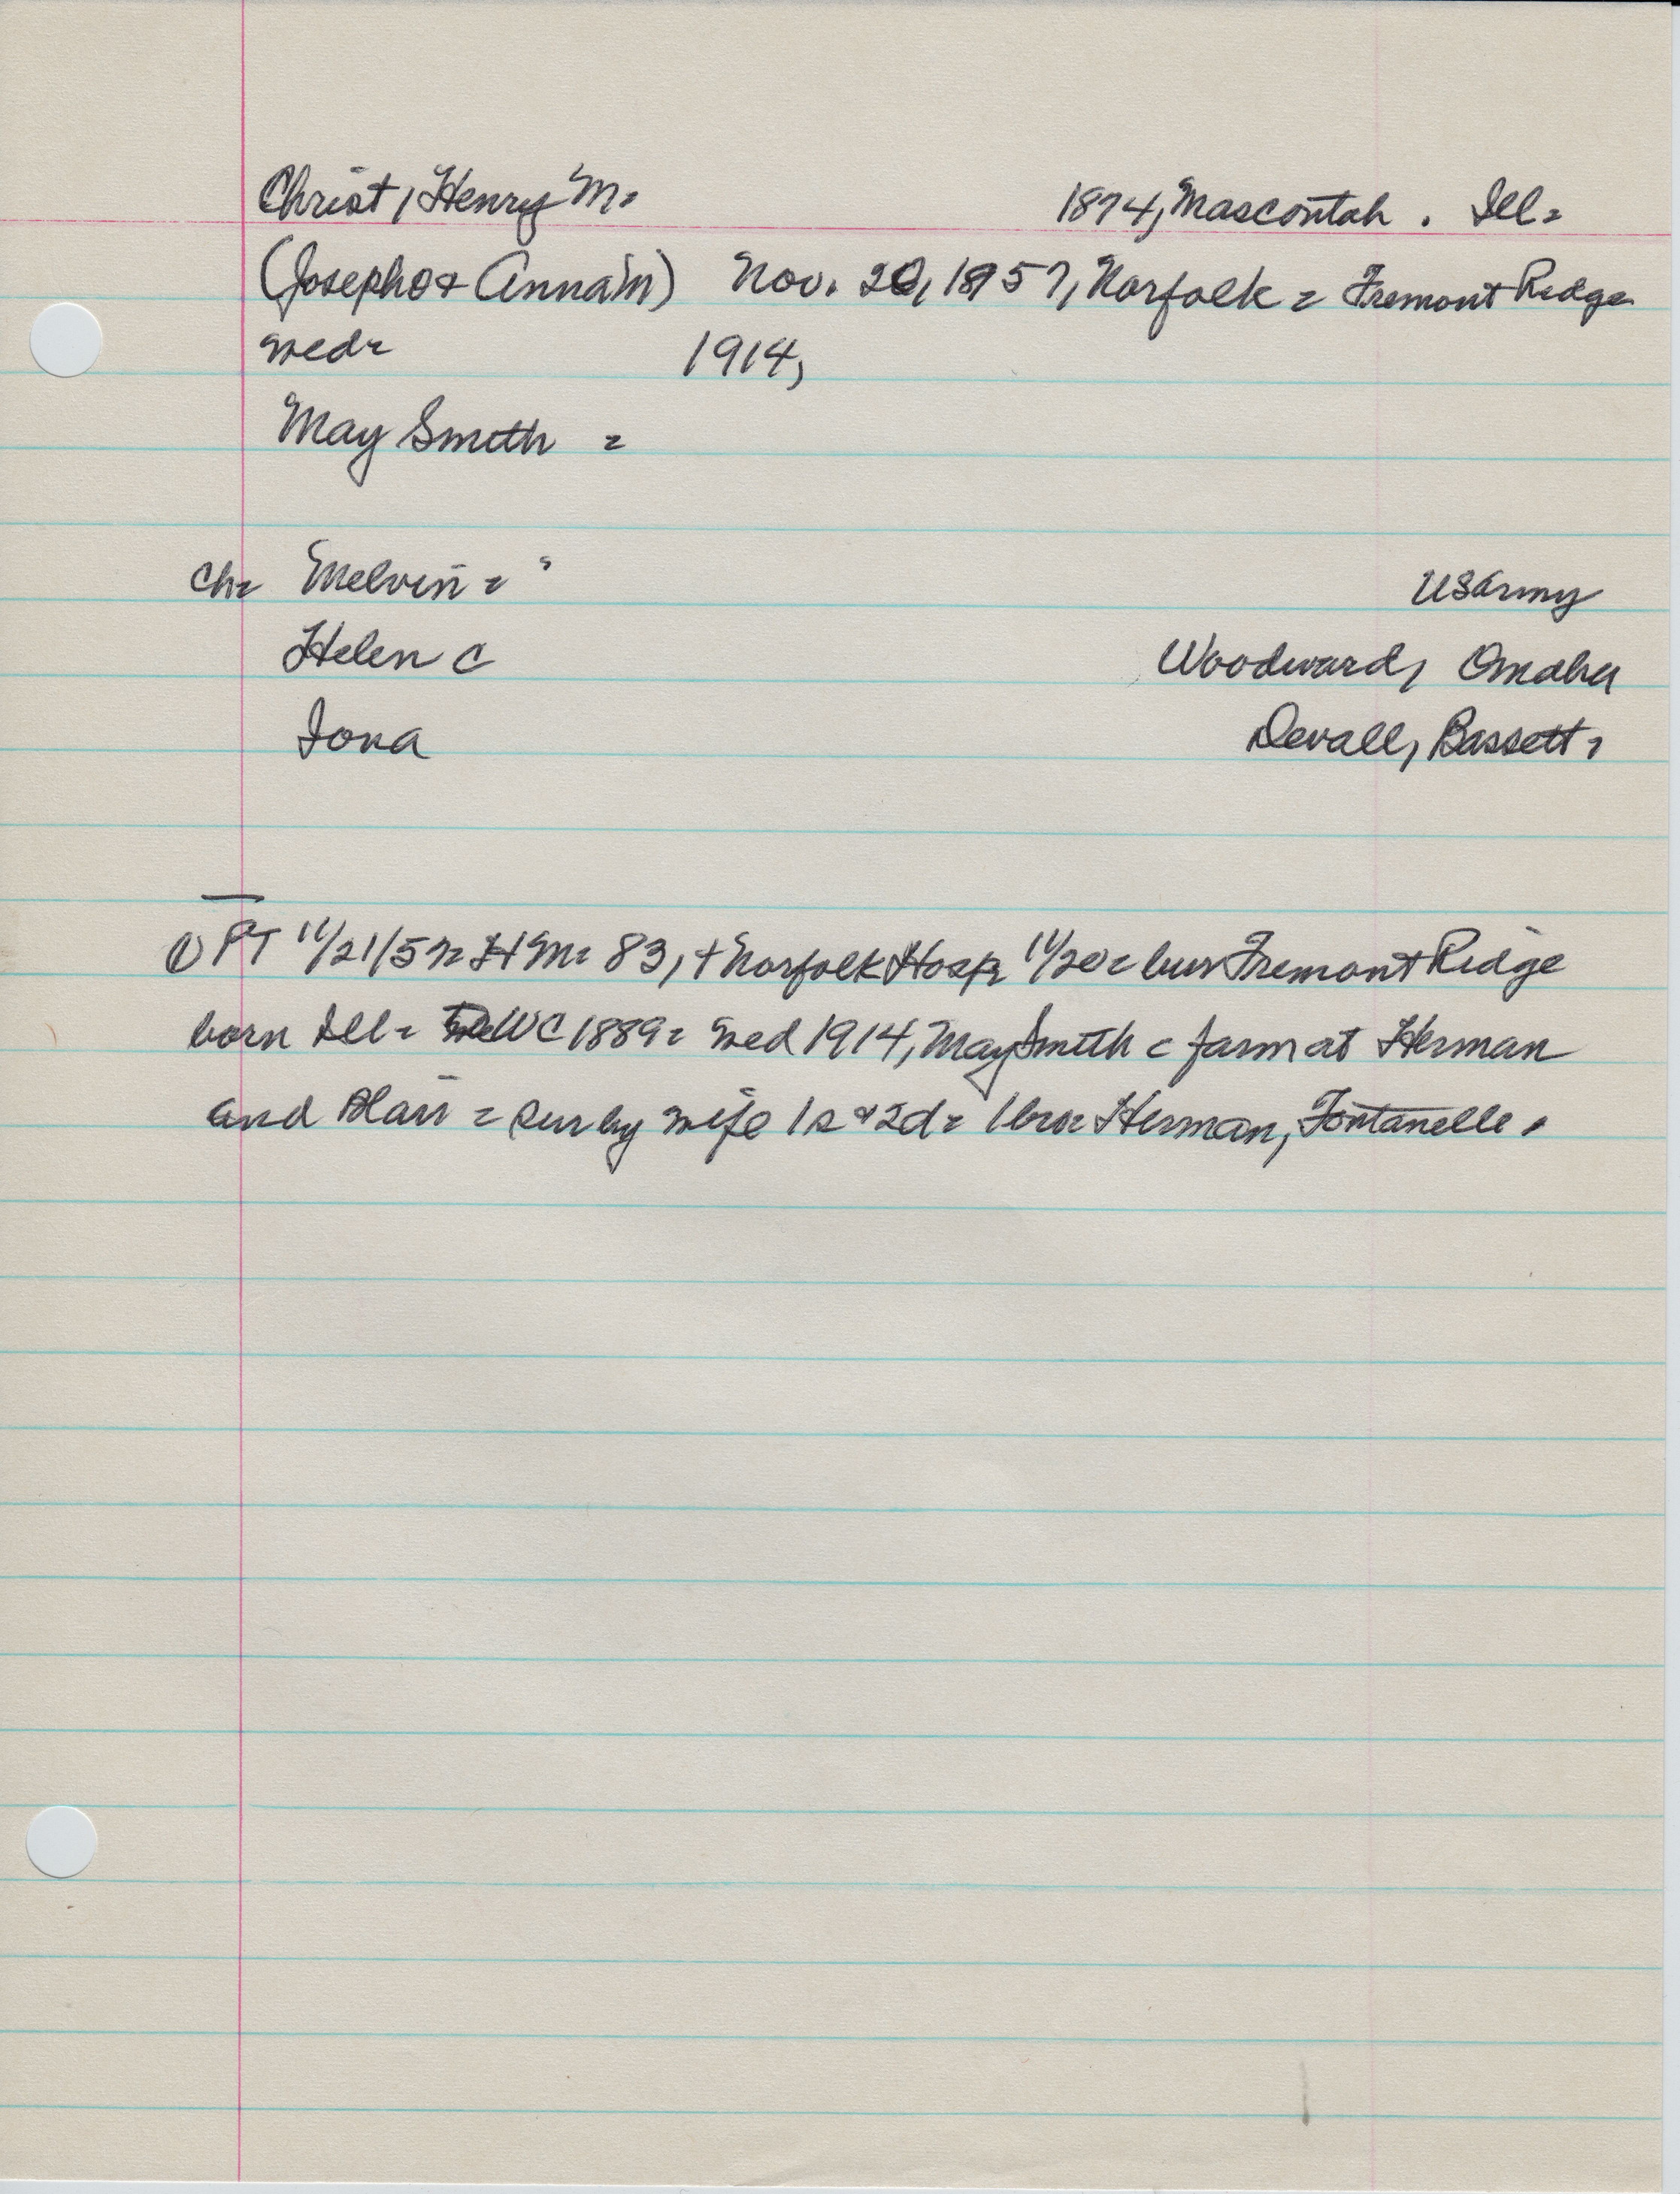 Christ, Henry M. 1874, Mascoutah. Ill=
(Joseph & Anna) Nov. 20, 1957, Norfolk = Fremont Ridge
wed= 1914,
May Smith =
ch= Melvin = US Army
Helen C Woodward, Omaha
Iona Devall, Bassett.
① PT 11/21/57= HM= 83, + Norfolk Hosp 11/20 = bur Fremont Ridge
born Ill= WC 1889= wed 1914, May Smith = farm at Herman
and Blair = sur by wife 1s & 2d= 1 bro= Herman, Fontanelle.